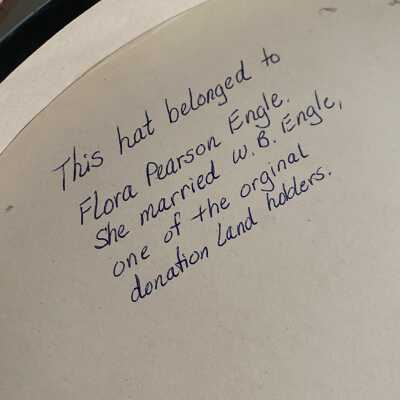 This hat belonged to
Flora Pearson Engle.
She married W.B. Engle,
one of the orginal
donation land holders.